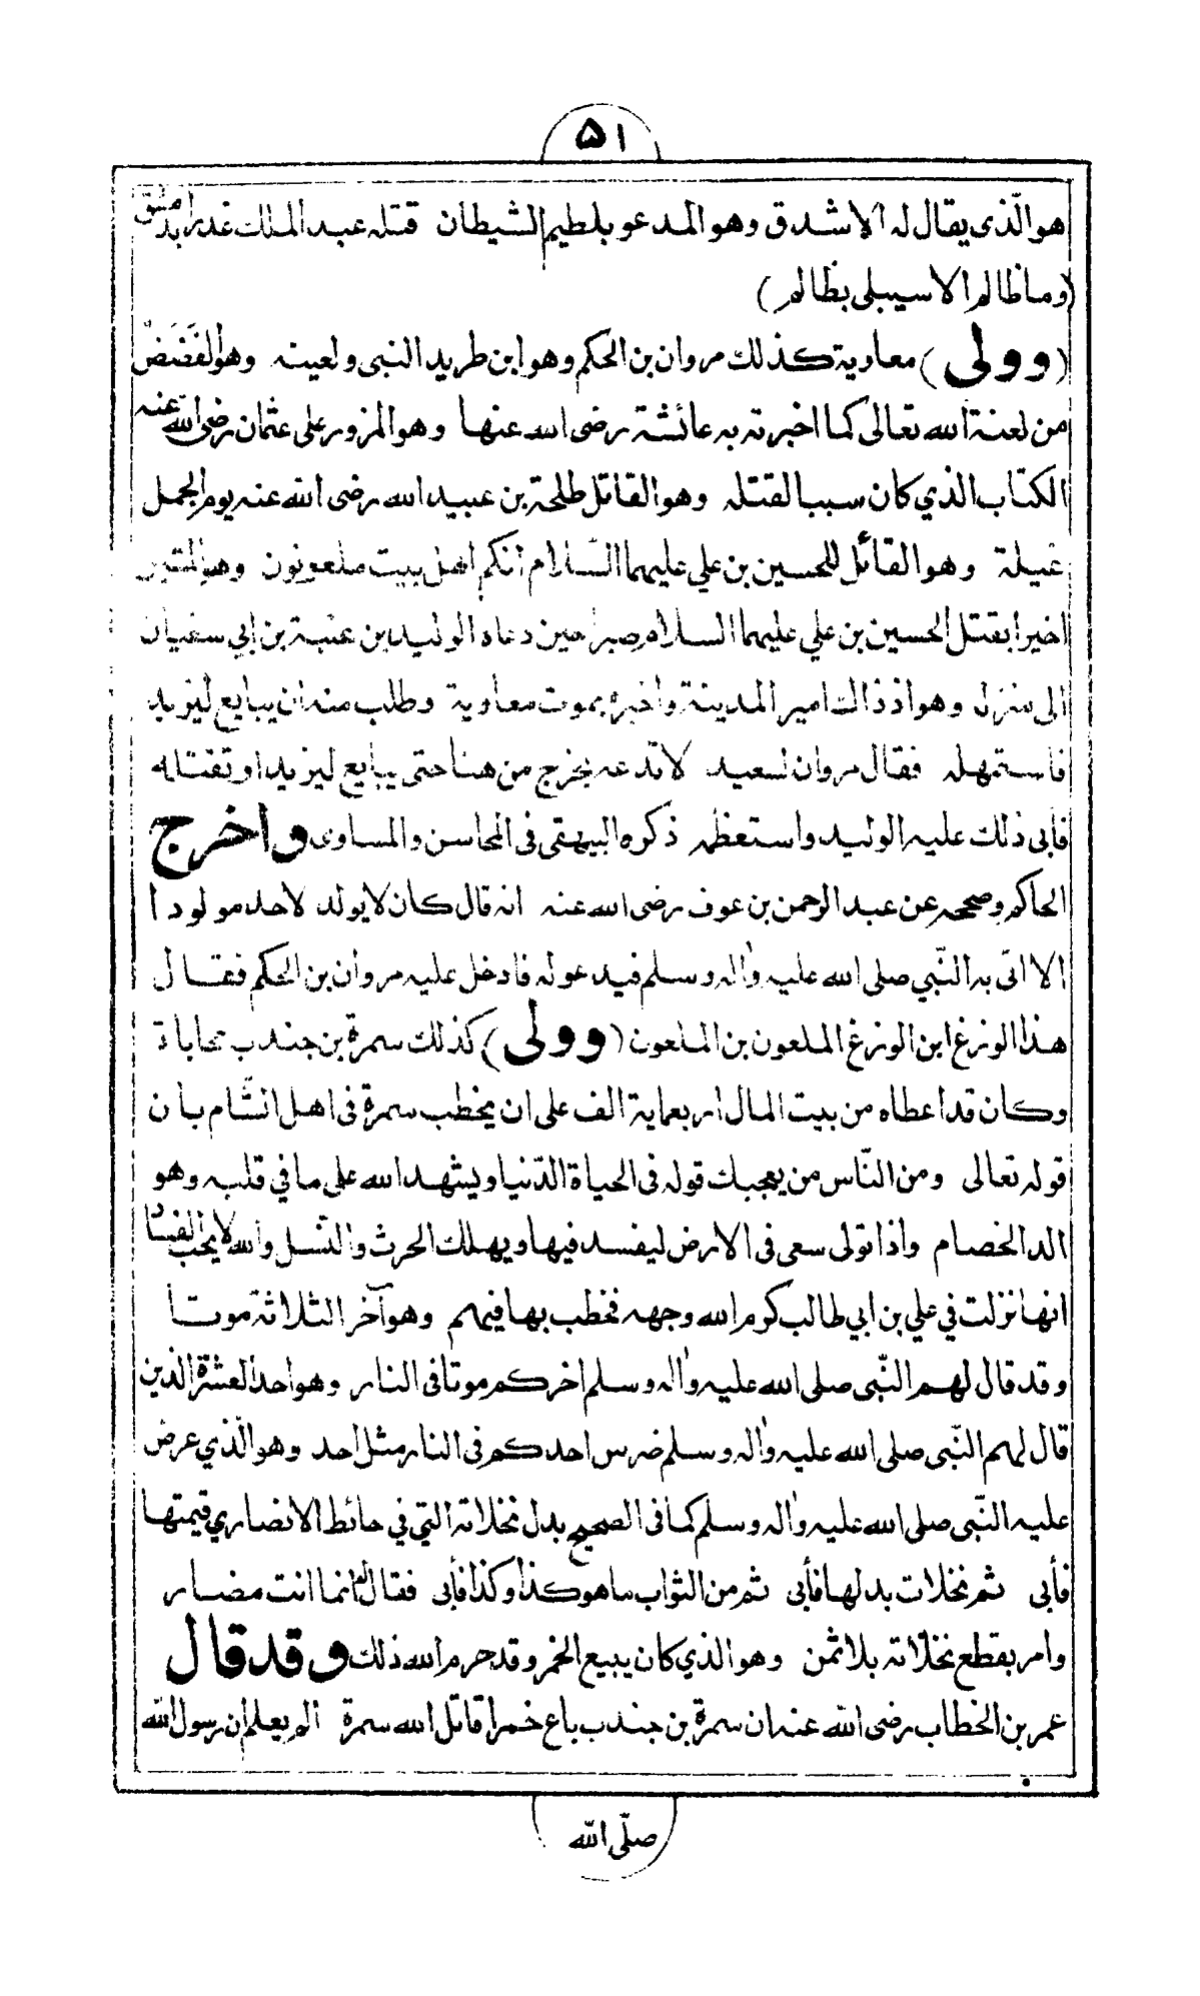 ٥١
هو الّذى يقال له الاشدق وهو المدعو بلطيم الشيطان قتله عبد الملك غدرا بدمشق
(وما ظالم الا سيبلى بظالم)
(وولى) معاوية كذلك مروان بن الحكم وهو ابن طريد النبى ولعينه وهو الفَضَضُ
من لعنة الله تعالى كما اخبرته به عائشة رضى الله عنها وهو المزور على عثمان رضى الله عنه
الكتاب الذي كان سببا لقتله وهو القاتل طلحة بن عبيد الله رضى الله عنه يوم الجمل
غيلة وهو القائل للحسين بن علي عليهما السّلام انكم اهل بيت ملعونون وهو المشير
اخيرا بقتل الحسين بن علي عليهما السلام صبرا حين دعاه الوليد بن عتبة بن ابي سفيان
الى منزله وهو اذ ذاك امير المدينة واخبره بموت معاوية وطلب منه ان يبايع ليزيد
فاستمهله فقال مروان لسعيد لا تدعه يخرج من هنا حتى يبايع ليزيد او تقتله
فأبى ذلك عليه الوليد واستعظمه ذكره البيهقى فى المحاسن والمساوى واخرج
الحاكم وصححه عن عبد الرحمن بن عوف رضى الله عنه انه قال كان لا يولد لاحد مولودا
الا اتى به النّبي صلى الله عليه وآله وسلم فيدعو له فادخل عليه مروان بن الحكم فقال
هذا الوزغ ابن الوزغ الملعون بن الملعون (وولى) كذلك سمرة بن جندب محاباة
وكان قد اعطاه من بيت المال اربعماية الف على ان يخطب سمرة فى اهل الشّام بان
قوله تعالى ومن النّاس من يعجبك قوله فى الحياة الدّنيا ويشهد الله على ما في قلبه وهو
الد الخصام واذا تولى سعى فى الارض ليفسد فيها ويهلك الحرث والنّسل والله لا يحب الفساد
انها نزلت في علي بن ابي طالب كرم الله وجهه فخطب بها فيهم وهو آخر الثلاثة موتا
وقد قال لهم النّبى صلى الله عليه وآله وسلم اخركم موتا فى النار وهو احد العشرة الذين
قال لهم النّبى صلى الله عليه وآله وسلم ضرس احدكم فى النار مثل احد وهو الّذي عرض
عليه النّبى صلى الله عليه وآله وسلم كما فى الصحيح بدل نخلاته التي في حائط الانصاري قيمتها
فأبى ثم نخلات بدلها فأبى ثم من الثواب ما هو كذا وكذا فأبى فقال له انما انت مضار
وامر بقطع نخلاته بلا ثمن وهو الذي كان يبيع الخمر وقد حرم الله ذلك وقد قال
عمر بن الخطاب رضى الله عنه ان سمرة بن جندب باع خمرا قاتل الله سمرة الم يعلم ان رسول الله
صلّى الله